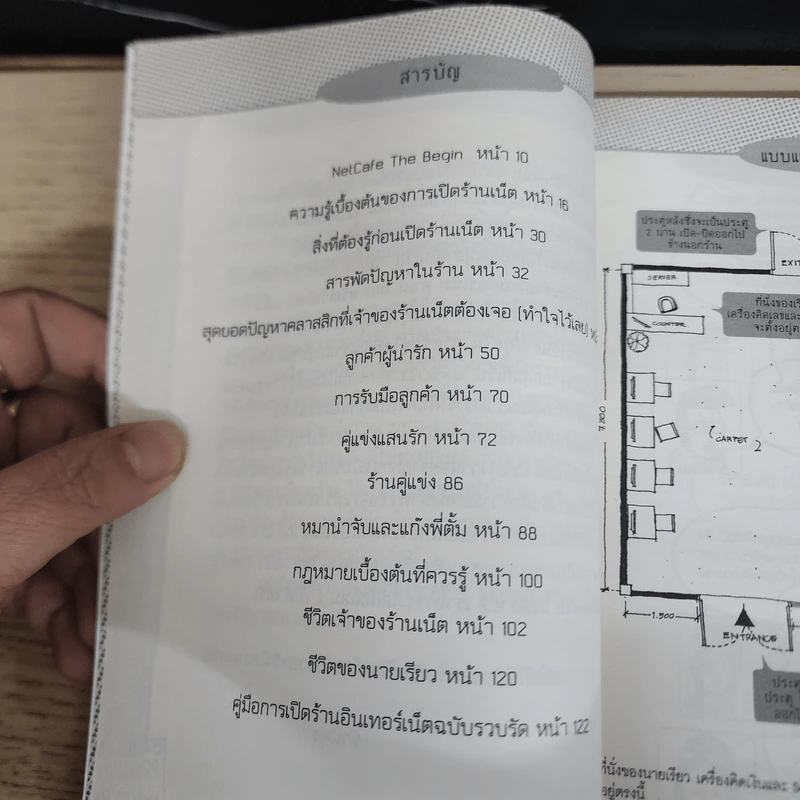 สารบัญ
NetCafe The Begin หน้า 10
ความรู้เบื้องต้นของการเปิดร้านเน็ต หน้า 16
สิ่งที่ต้องรู้ก่อนเปิดร้านเน็ต หน้า 30
สารพัดปัญหาในร้าน หน้า 32
สุดยอดปัญหาคลาสสิกที่เจ้าของร้านเน็ตต้องเจอ (ทำใจไว้เลย)
ลูกค้าผู้น่ารัก หน้า 50
การรับมือลูกค้า หน้า 70
คู่แข่งแสนรัก หน้า 72
ร้านคู่แข่ง 86
หมานำจับและแก๊งพี่ตั้ม หน้า 88
กฎหมายเบื้องต้นที่ควรรู้ หน้า 100
ชีวิตเจ้าของร้านเน็ต หน้า 102
ชีวิตของนายเรียว หน้า 120
คู่มือการเปิดร้านอินเทอร์เน็ตฉบับรวบรัด หน้า 122
ประตูหลังซึ่งจะเป็นประตู
2 บาน เปิด-ปิดออกไป
ข้างนอกร้าน
SERVER
COUNTER
7.200
CARPET 2
1.500
ENTRANCE
ที่นั่งของนายเรียว เครื่องคิดเงินและ
อยู่ตรงนี้